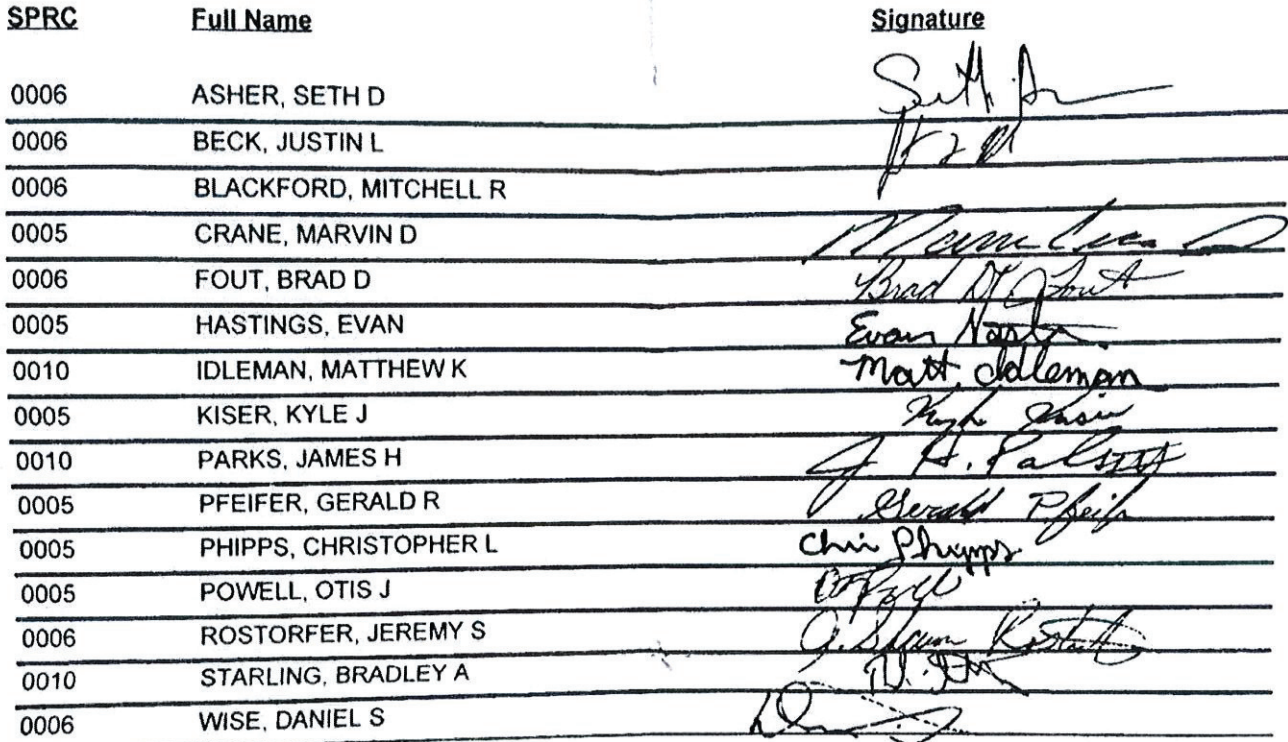 SPRC Full Name Signature
0006 ASHER, SETH D Seth
0006 BECK, JUSTIN L
0006 BLACKFORD, MITCHELL R
0005 CRANE, MARVIN D
0006 FOUT, BRAD D Brad Fout
0005 HASTINGS, EVAN Evan
0010 IDLEMAN, MATTHEW K Matt Idleman
0005 KISER, KYLE J
0010 PARKS, JAMES H J H.
0005 PFEIFER, GERALD R Gerald Pfeifer
0005 PHIPPS, CHRISTOPHER L Chris Phipps
0005 POWELL, OTIS J
0006 ROSTORFER, JEREMY S J. Shawn
0010 STARLING, BRADLEY A
0006 WISE, DANIEL S